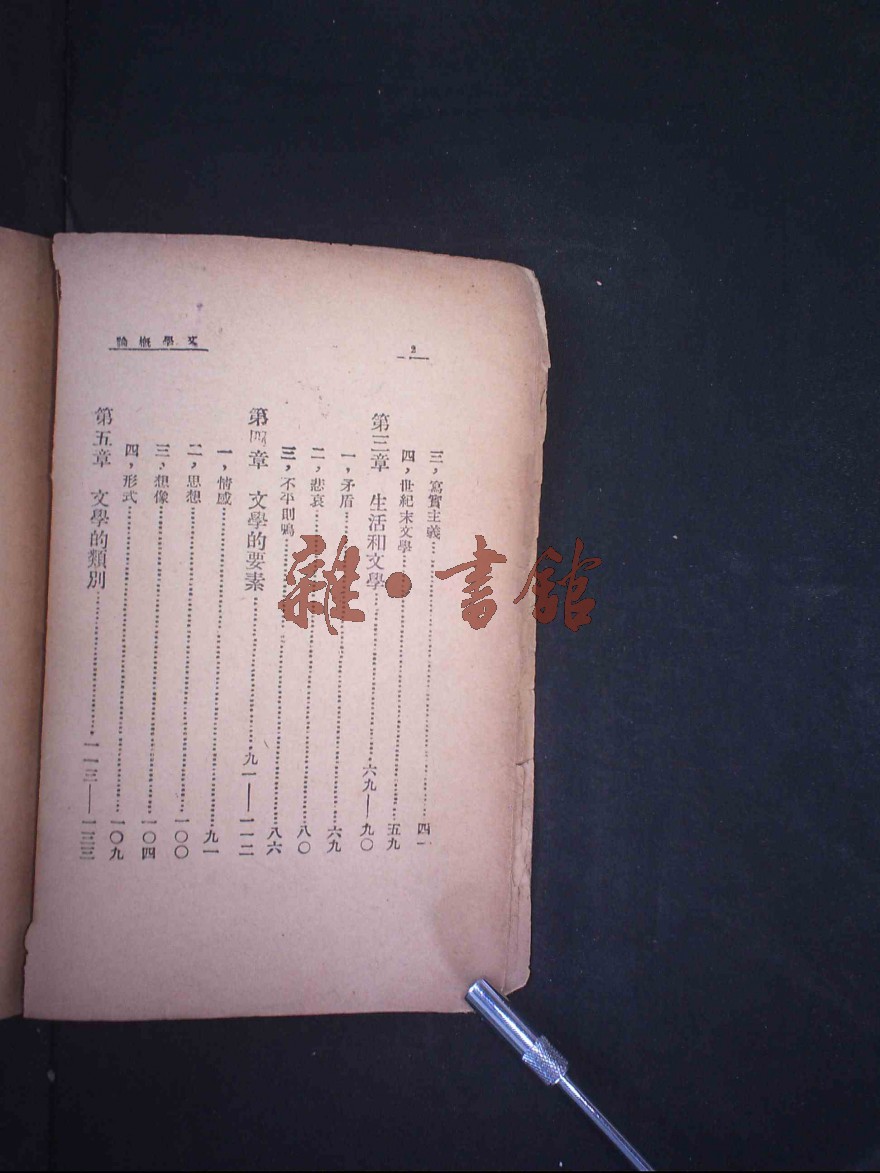 文學概論
2
三，寫實主義……四一
四，世紀末文學……五九
第三章　生活和文學……六九——九〇
一，矛盾……六九
二，悲哀……八〇
三，不平則鳴……八六
第四章　文學的要素……九一——一一二
一，情感……九一
二，思想……一〇〇
三，想像……一〇四
四，形式……一〇九
第五章　文學的類別……一一三——一三三
雜·書館